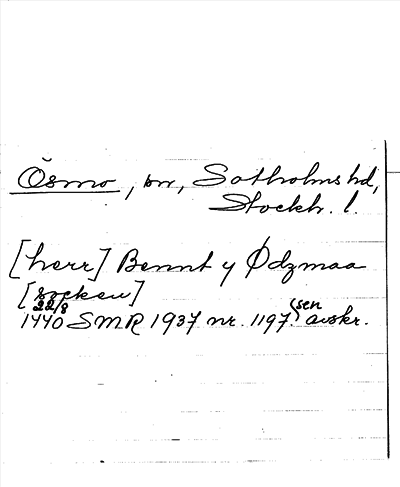 Ösmo, sn, Sotholms hd,
Stockh. l.
[herr] Bennt y Ødzmaa
[socken]
22/8
1440 SMR 1937 nr. 1197. (sen
avskr.